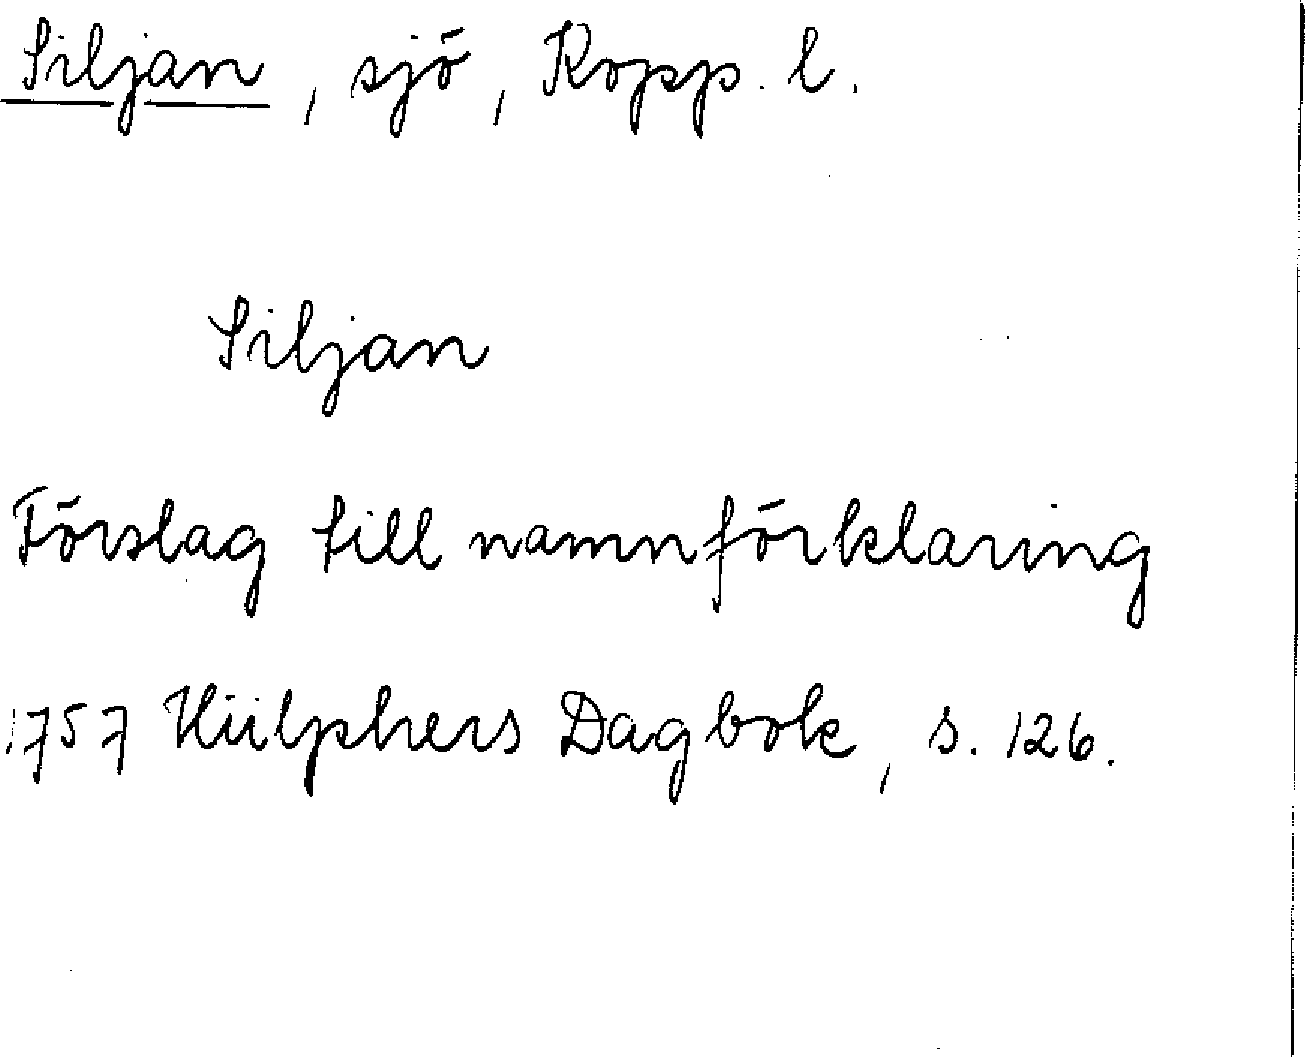 Siljan, sjö, Kopp. l.
Siljan
Förslag till namnförklaring
1757 Hülphers Dagbok, s. 126.